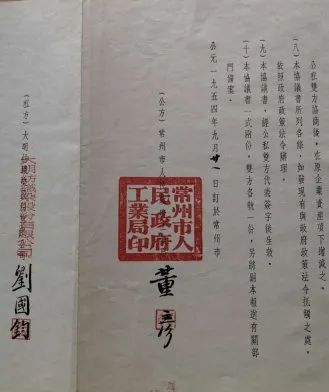 公私雙方協商後，在原企業資產項下增減之。
（八）本協議書所列各條，如發現有與政府政策法令抵觸之處，
依照政府政策法令辦理。
（九）本協議書，經公私雙方代表簽字後生效。
（十）本協議書一式兩份，雙方各執一份，另將副本報送有關部
門備案。
公元一九五四年九月廿一日訂於常州市
（公方）常州市人民政府
常州市人
民政府
工業局印
董
（私方）大明
劉國鈞